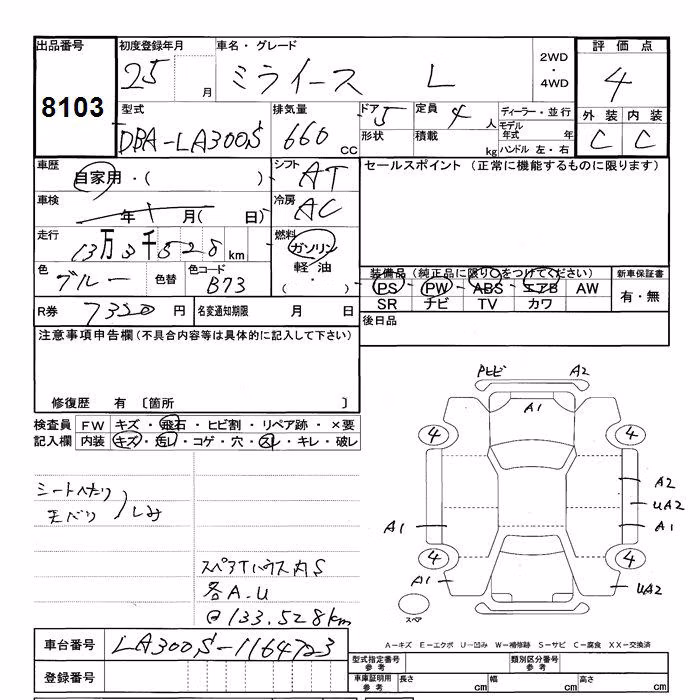 出品番号 初度登録年月 車名・グレード 評価点
8103 25 月 ミライース L 2WD・4WD 4
型式 排気量 ドア 5 定員 4 人 ディーラー・並行 外装 内装
DBA-LA300S 660 CC 形状 積載 kg モデル年式 年 C C
ハンドル 左・右
車歴 自家用・( ) シフト AT セールスポイント (正常に機能するものに限ります)
車検 年 月( 日) 冷房 AC
走行 13万3千528km 燃料 ガソリン
軽油
( )
色 ブルー 色替 色コード B73
装備品 (純正品に限り○をつけてください) 新車保証書
PS PW ABS エアB AW 有・無
SR ナビ TV カワ
R券 7320円 名変通知期限 月 日 後日品
注意事項申告欄(不具合内容等は具体的に記入して下さい)
修復歴 有 〔箇所 〕
検査員 FW キズ・飛石・ヒビ割・リペア跡・×要
記入欄 内装 キズ・汚レ・コゲ・穴・スレ・キレ・破レ
Pヒビ A2
A1
4 4
シートへたり A2
毛バリ シミ UA2
A1 A1
4 4
A1 UA2
各A.U
@133,528km
スペア
車台番号 LA300S-1164723
A-キズ E-エクボ U-凹み W-補修跡 S-サビ C-腐食 XX-交換済
登録番号
型式指定番号 参考 類別区分番号 参考
車庫証明用 参考 長さ cm 幅 cm 高さ cm